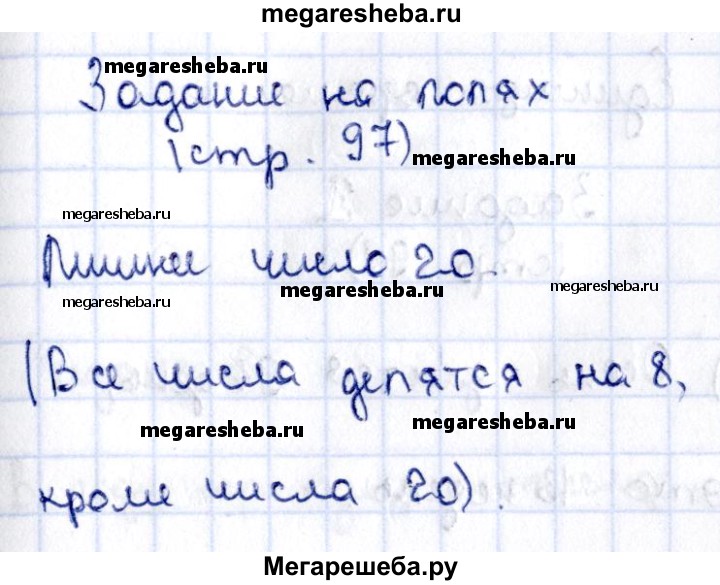 megaresheba.ru
megaresheba.ru
Задание на полях
(стр. 97)
megaresheba.ru
megaresheba.ru
Лишнее число 20.
megaresheba.ru
megaresheba.ru
megaresheba.ru
(Все числа делятся на 8,
megaresheba.ru
megaresheba.ru
кроме числа 20).
Мегарешеба.ру